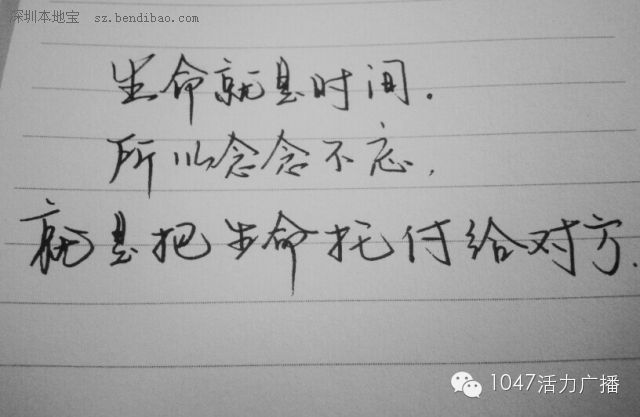 深圳本地宝 sz.bendibao.com
生命就是时间.
所以念念不忘,
就是把生命托付给对方.
1047活力广播